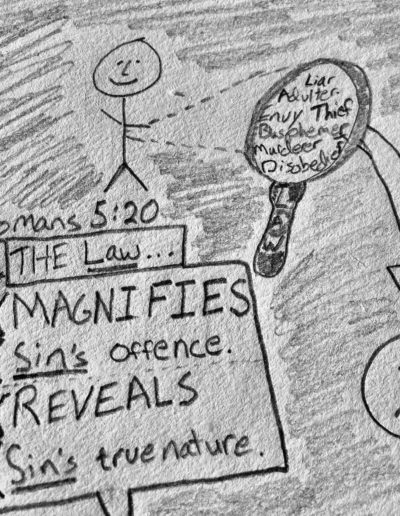 Liar
Adulter.
Envy Thief
Blasphemer
Murdeer
omans 5:20
THE Law...
MAGNIFIES
Sin's offence.
REVEALS
Sin's true nature.